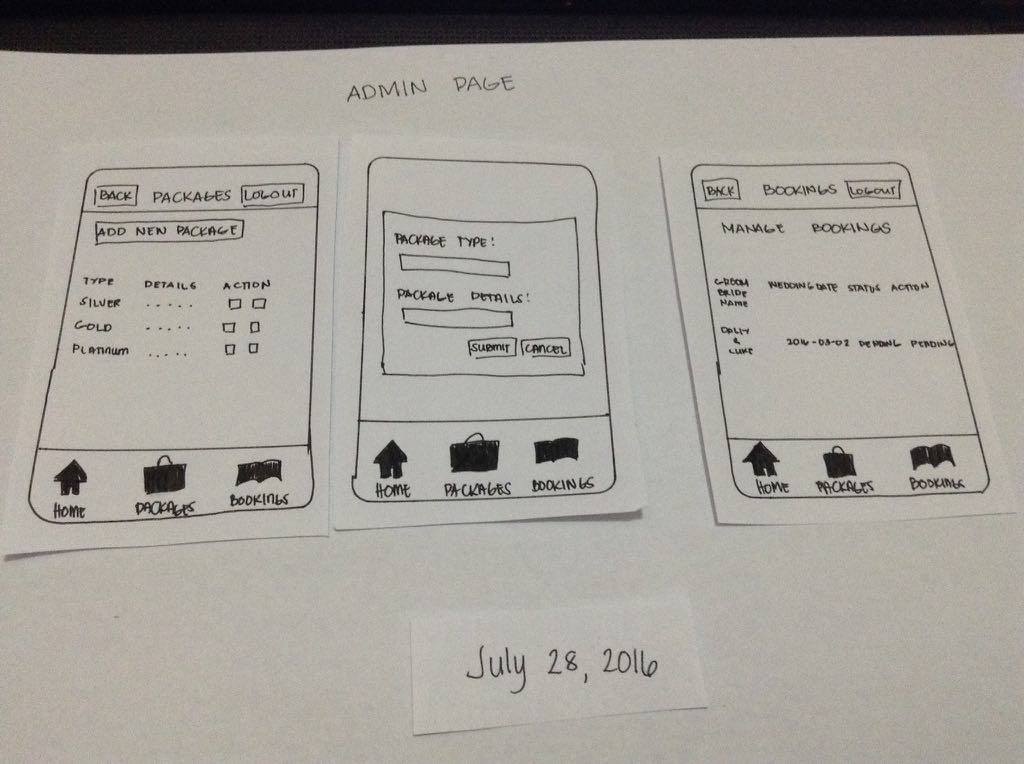 ADMIN PAGE
BACK PACKAGES LOGOUT
ADD NEW PACKAGE
TYPE DETAILS ACTION
SILVER .....
GOLD .....
PLATINUM .....
HOME PACKAGES BOOKINGS
PACKAGE TYPE:
PACKAGE DETAILS:
SUBMIT CANCEL
HOME PACKAGES BOOKINGS
BACK BOOKINGS LOGOUT
MANAGE BOOKINGS
GROOM
BRIDE
NAME
WEDDING DATE STATUS ACTION
&
LUKE
2016-03-02 PENDING PENDING
HOME PACKAGES BOOKINGS
July 28, 2016